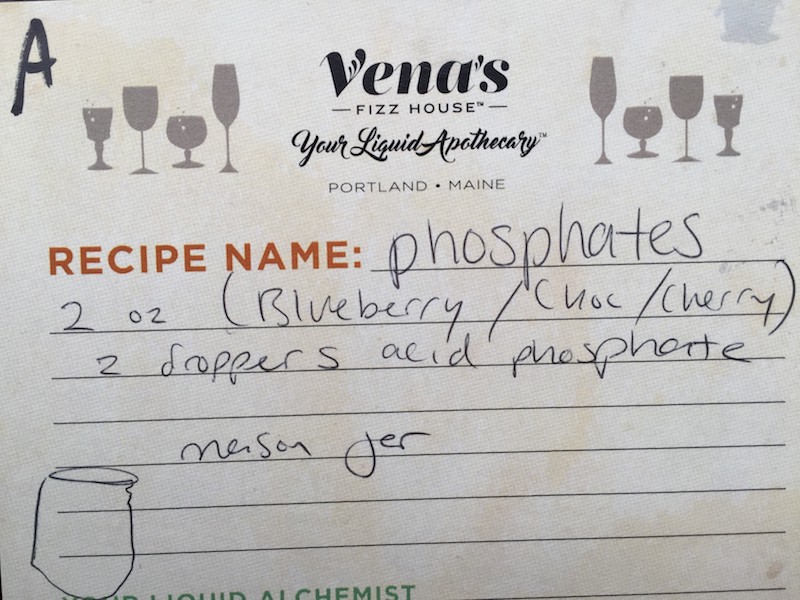 A
Vena's
FIZZ HOUSE™
Your Liquid Apothecary™
PORTLAND • MAINE
RECIPE NAME: phosphates
2 oz (Blueberry / Choc / Cherry)
2 droppers acid phosphate
meison jer
YOUR LIQUID ALCHEMIST